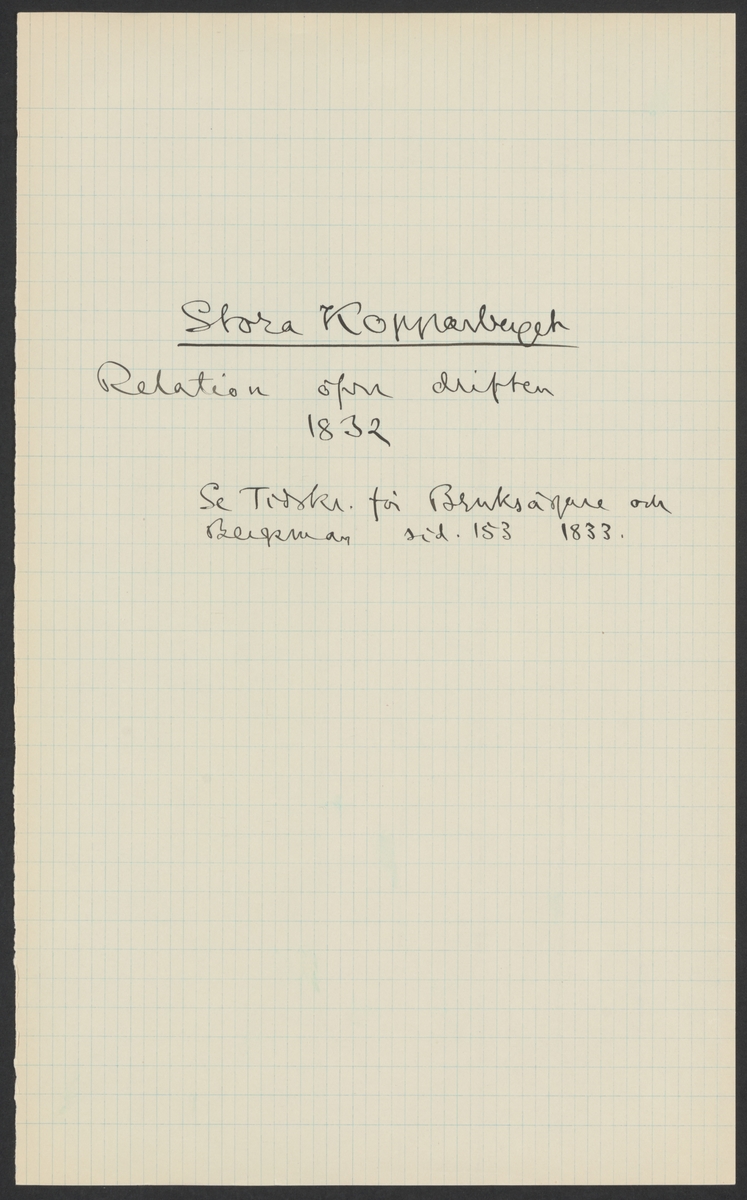 Stora Kopparberget
Relation öfver driften
1832
Se Tidskr. för Bruksägare och
Bergsmän sid. 153 1833.